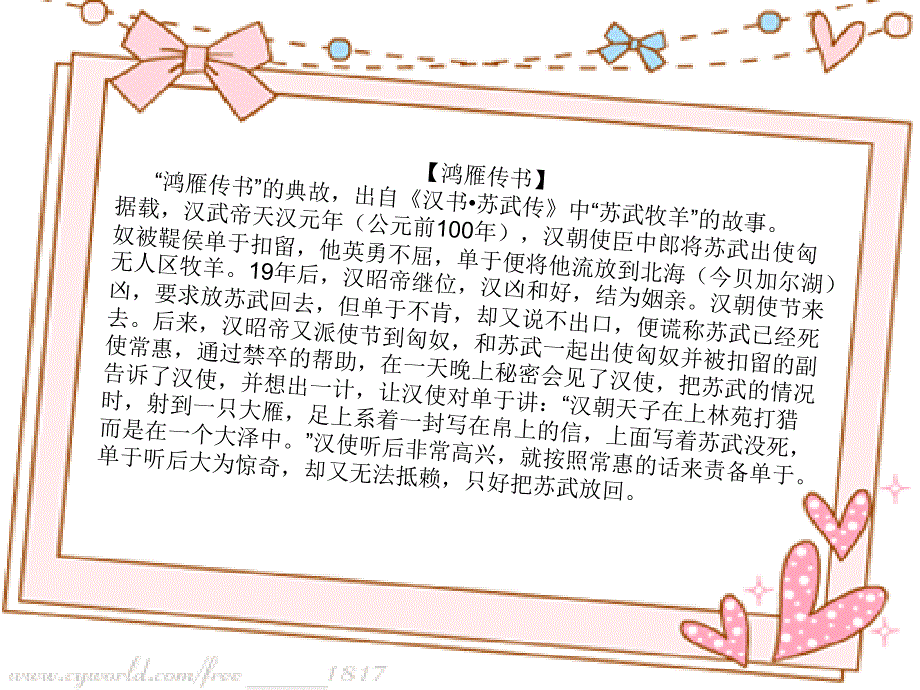 【鸿雁传书】
“鸿雁传书”的典故，出自《汉书•苏武传》中“苏武牧羊”的故事。
据载，汉武帝天汉元年（公元前100年），汉朝使臣中郎将苏武出使匈
奴被鞮侯单于扣留，他英勇不屈，单于便将他流放到北海（今贝加尔湖）
无人区牧羊。19年后，汉昭帝继位，汉凶和好，结为姻亲。汉朝使节来
凶，要求放苏武回去，但单于不肯，却又说不出口，便谎称苏武已经死
去。后来，汉昭帝又派使节到匈奴，和苏武一起出使匈奴并被扣留的副
使常惠，通过禁卒的帮助，在一天晚上秘密会见了汉使，把苏武的情况
告诉了汉使，并想出一计，让汉使对单于讲：“汉朝天子在上林苑打猎
时，射到一只大雁，足上系着一封写在帛上的信，上面写着苏武没死，
而是在一个大泽中。”汉使听后非常高兴，就按照常惠的话来责备单于。
单于听后大为惊奇，却又无法抵赖，只好把苏武放回。
www.cyworld.com/free ______1817